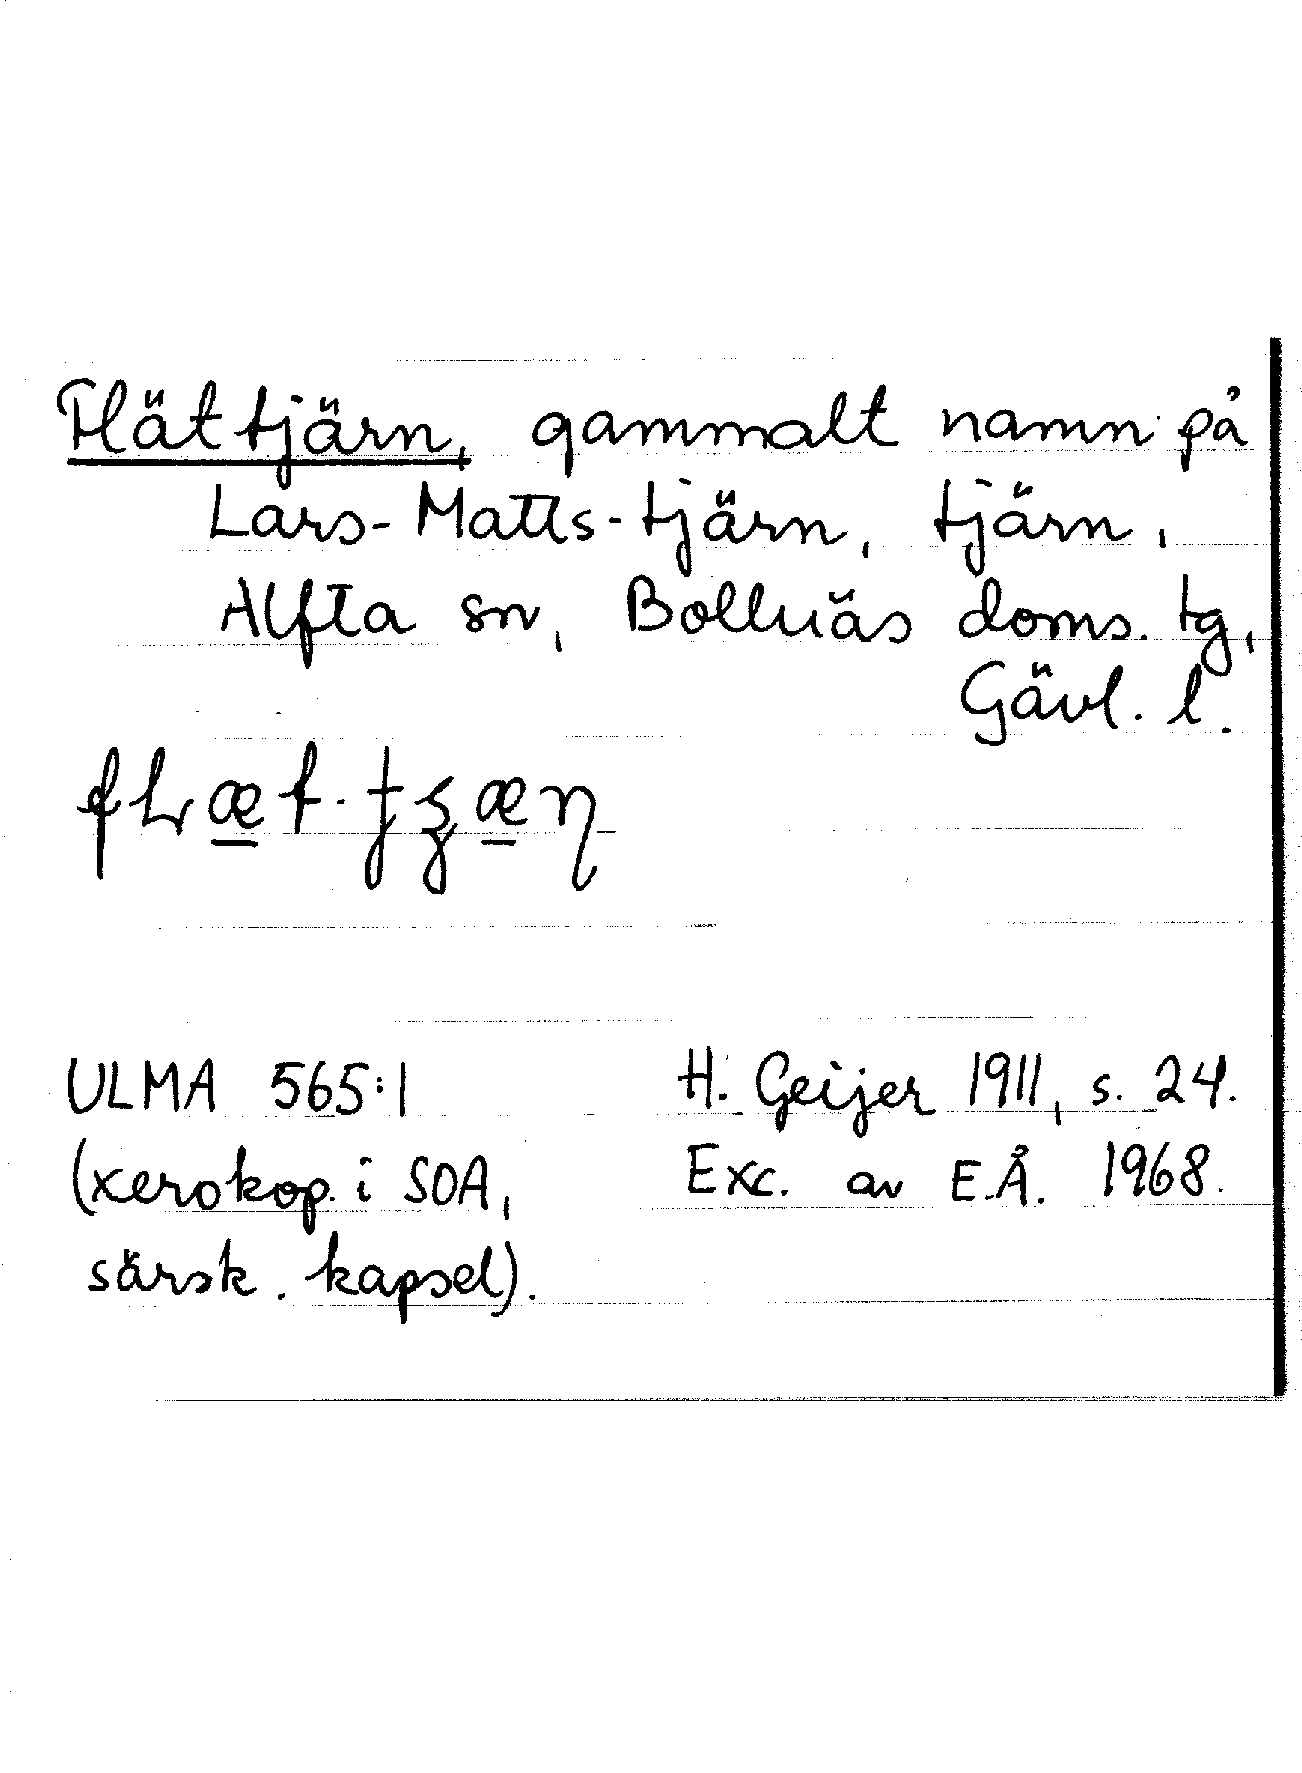 Flättjärn, gammalt namn på
Lars-Matts-tjärn, tjärn,
Alfta sn, Bollnäs doms. tg,
Gävl. l.
ULMA 565:1
(xerokop. i SOA,
särsk. kapsel).
H. Geijer 1911, s. 24.
Exc. av E.Å. 1968.